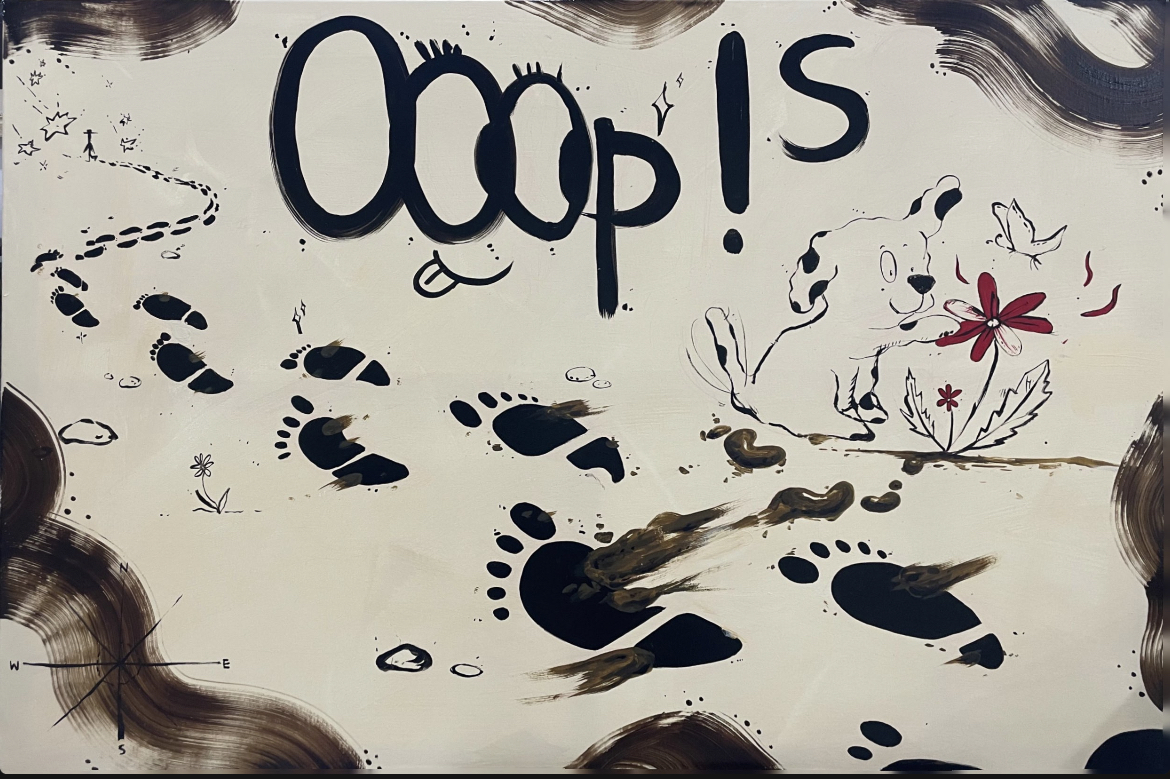 OOOp!s
N
W E
S